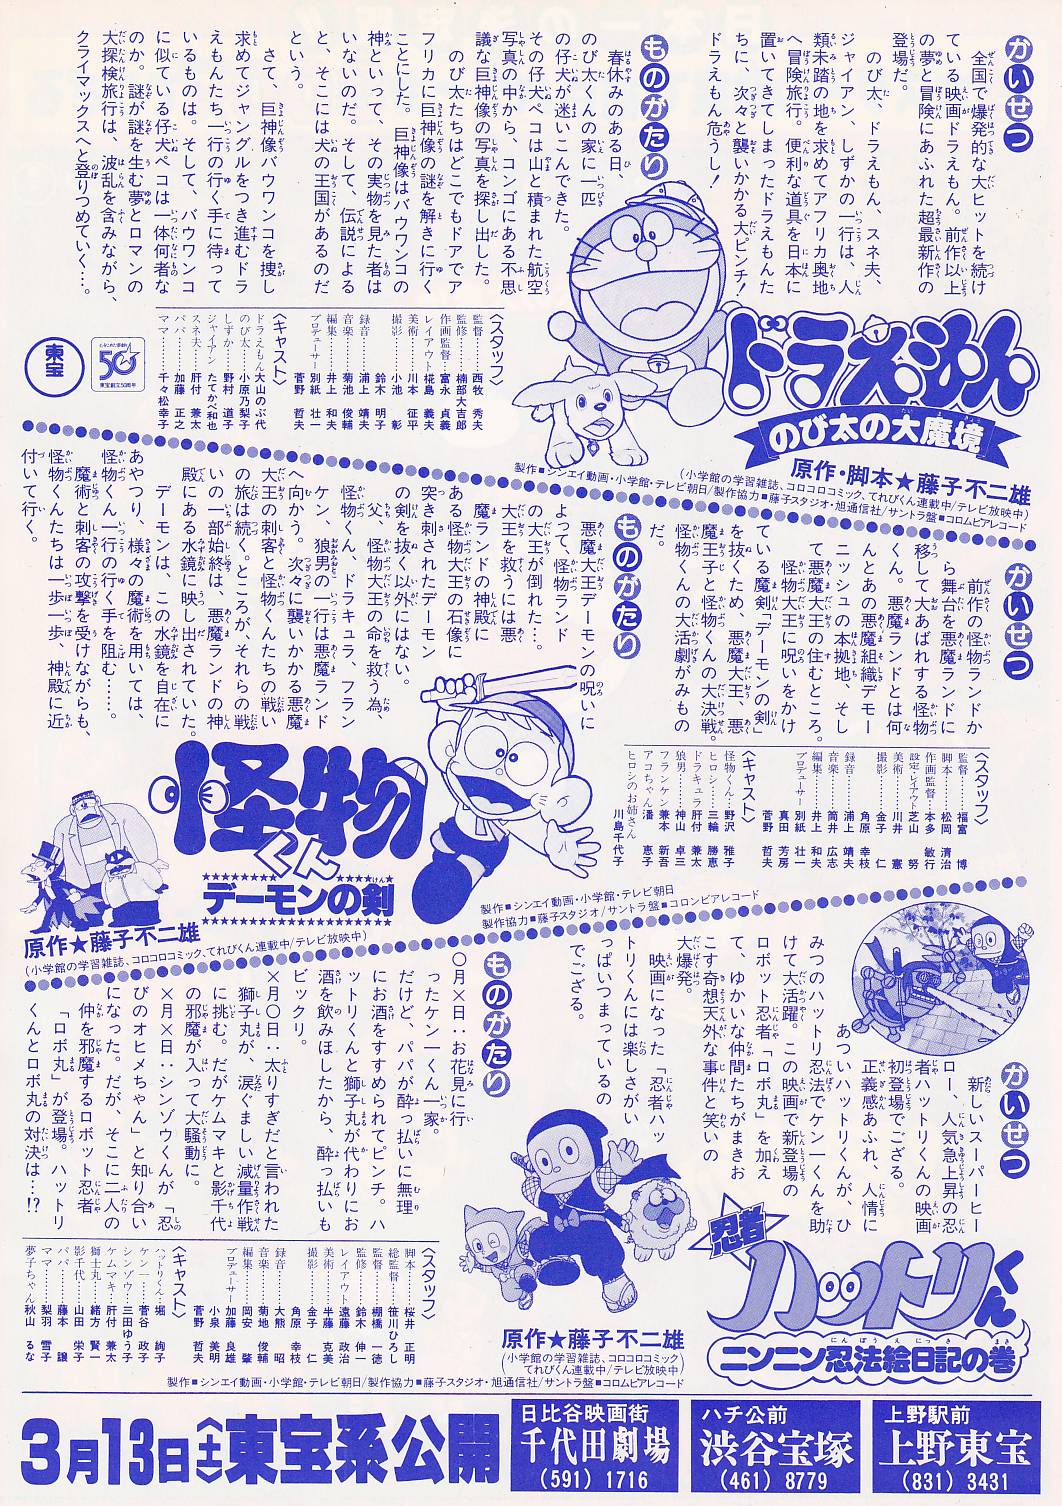 かいせつ
全国で爆発的な大ヒットを続け
ている映画ドラえもん。前作以上
の夢と冒険にあふれた超最新作の
登場だ。
のび太、ドラえもん、スネ夫、
ジャイアン、しずかの一行は、人
類未踏の地を求めてアフリカ奥地
へ冒険旅行。便利な道具を日本に
置いてきてしまったドラえもんた
ちに、次々と襲いかかる大ピンチ！
ドラえもん危うし！
ものがたり
春休みのある日、
のび太くんの家に一匹
の仔犬が迷いこんできた。
その仔犬ペコは山と積まれた航空
写真の中から、コンゴにある不思
議な巨神像の写真を探し出した。
のび太たちはどこでもドアでア
フリカに巨神像の謎を解きに行く
ことにした。巨神像はバウワンコの
神といって、その実物を見た者は
いないのだ。そして、伝説による
と、そこには犬の王国があるのだ
という。
さて、巨神像バウワンコを捜し
求めてジャングルをつき進むドラ
えもんたち一行の行く手に待って
いるものは。そして、バウワンコ
に似ている仔犬ペコは一体何者な
のか。謎が謎を生む夢とロマンの
大探検旅行は、波乱を含みながら、
クライマックスへと登りつめていく…。
ドラえもん
のび太の大魔境
原作・脚本★藤子不二雄
(小学館の学習雑誌、コロコロコミック、てれびくん連載中/テレビ放映中)
製作■シンエイ動画・小学館・テレビ朝日/製作協力■藤子スタジオ・旭通信社/サントラ盤■コロムビアレコード
〈スタッフ〉
監督……西牧 秀夫
監修……楠部大吉郎
作画監督……富永 貞義
レイアウト…椛島 義夫
美術……川本 征平
撮影……小池 彰
鈴木 明子
録音……浦上 靖夫
音楽……菊池 俊輔
編集……井上 和夫
プロデューサー…別紙 壮一
菅野 哲夫
〈キャスト〉
ドラえもん…大山のぶ代
のび太……小原乃梨子
しずか……野村 道子
ジャイアン…たてかべ和也
スネ夫……肝付 兼太
パパ……加藤 正之
ママ……千々松幸子
50
東宝創立50周年
東宝
かいせつ
前作の怪物ランドか
ら舞台を悪魔ランドに
移して大あばれする怪物
くん。悪魔ランドとは何
んとあの悪魔組織デモー
ニッシュの本拠地、そし
て悪魔大王の住むところ。
怪物大王に呪いをかけ
ている魔剣「デーモンの剣」
を抜くため、悪魔大王、悪
魔王子と怪物くんの大決戦。
怪物くんの大活劇がみもの
だ。
ものがたり
悪魔大王デーモンの呪いに
よって、怪物ランド
の大王が倒れた…。
大王を救うには悪
魔ランドの神殿に
ある怪物大王の石像に
突き刺されたデーモン
の剣を抜く以外にはない。
父、怪物大王の命を救う為、
怪物くん、ドラキュラ、フラン
ケン、狼男の一行は悪魔ランド
へ向かう。次々に襲いかかる悪魔
大王の刺客と怪物くんたちの戦い
の旅は続く。ところが、それらの戦
いの一部始終は、悪魔ランドの神
殿にある水鏡に映し出されていた。
デーモンは、この水鏡を自在に
あやつり、様々の魔術を用いては、
怪物くん一行の行く手を阻む……。
魔術と刺客の攻撃を受けながらも、
怪物くんたちは一歩一歩、神殿に近
付いて行く。
〈スタッフ〉
監督……福冨 博
脚本……松岡 清治
作画監督……本多 敏行
設定・レイアウト…芝山 努
美術……川井 憲
撮影……金子 仁
角原 幸枝
録音……浦上 靖夫
音楽……筒井 広志
編集……井上 和夫
プロデューサー…別紙 壮一
真田 芳房
菅野 哲夫
〈キャスト〉
怪物くん……野沢 雅子
ヒロシ……三輪 勝恵
ドラキュラ…肝付 兼太
狼男……神山 卓三
フランケン…兼本 新吾
アコちゃん…潘 恵子
ヒロシのお姉さん
川島千代子
怪物くん
デーモンの剣
原作★藤子不二雄
(小学館の学習雑誌、コロコロコミック、てれびくん連載中/テレビ放映中)
製作■シンエイ動画・小学館・テレビ朝日
製作協力■藤子スタジオ/サントラ盤■コロンビアレコード
かいせつ
新しいスーパーヒー
ロー、人気急上昇の忍
者ハットリくんの映画
初登場でござる。
正義感あふれ、人情に
あついハットリくんが、ひ
みつのハットリ忍法でケン一くんを助
けて大活躍。この映画で新登場の
ロボット忍者「ロボ丸」を加え
て、ゆかいな仲間たちがまきお
こす奇想天外な事件と笑いの
大爆発。
映画になった「忍者ハッ
トリくん」には楽しさがい
っぱいつまっているの
でござる。
ものがたり
○月×日：お花見に行
ったケン一くん一家。
だけど、パパが酔っ払いに無理
にお酒をすすめられてピンチ。ハ
ットリくんと獅子丸が代わりにお
酒を飲みほしたから、酔っ払いも
ビックリ。
×月○日：太りすぎだと言われた
獅子丸が、涙ぐましい減量作戦
に挑む。だがケムマキと影千代
の邪魔が入って大騒動に。
×月×日：シンゾウくんが、「忍
びのオヒメちゃん」と知り合い
になった。だが、そこに二人の
仲を邪魔するロボット忍者
「ロボ丸」が登場。ハットリ
くんとロボ丸の対決は…!?
〈スタッフ〉
脚本……桜井 正明
総監督……笹川ひろし
監督……棚橋 一徳
監修……鈴木 伸一
レイアウト…遠藤 政治
美術……半藤 克美
撮影……金子 仁
角原 幸枝
録音……大熊 昭
音楽……菊地 俊輔
編集……岡安 肇
プロデューサー…加藤 良雄
小泉 美明
菅野 哲夫
〈キャスト〉
ハットリくん…堀 絢子
ケン一……菅谷 政子
シンゾウ……三田ゆう子
ケムマキ……肝付 兼太
獅子丸……緒方 賢一
影千代……山田 栄子
パパ……藤本 譲
ママ……梨羽 雪子
夢子ちゃん…秋山 るな
原作★藤子不二雄
(小学館の学習雑誌、コロコロコミック
てれびくん連載中/テレビ放映中)
製作■シンエイ動画・小学館・テレビ朝日/製作協力■藤子スタジオ・旭通信社/サントラ盤■コロムビアレコード
忍者
ハットリくん
ニンニン忍法絵日記の巻
3月13日〈土〉東宝系公開
日比谷映画街
千代田劇場
(591)1716
ハチ公前
渋谷宝塚
(461)8779
上野駅前
上野東宝
(831)3431